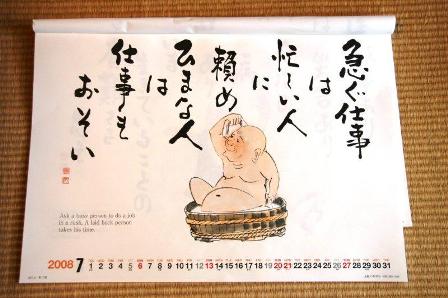 急ぐ仕事
は
忙しい人
に
頼め
ひまな人
は
仕事も
おそい
Ask a busy person to do a job
in a rush. A laid back person
takes his time.
2008 7 1 2 3 4 5 6 7 8 9 10 11 12 13 14 15 16 17 18 19 20 21 22 23 24 25 26 27 28 29 30 31